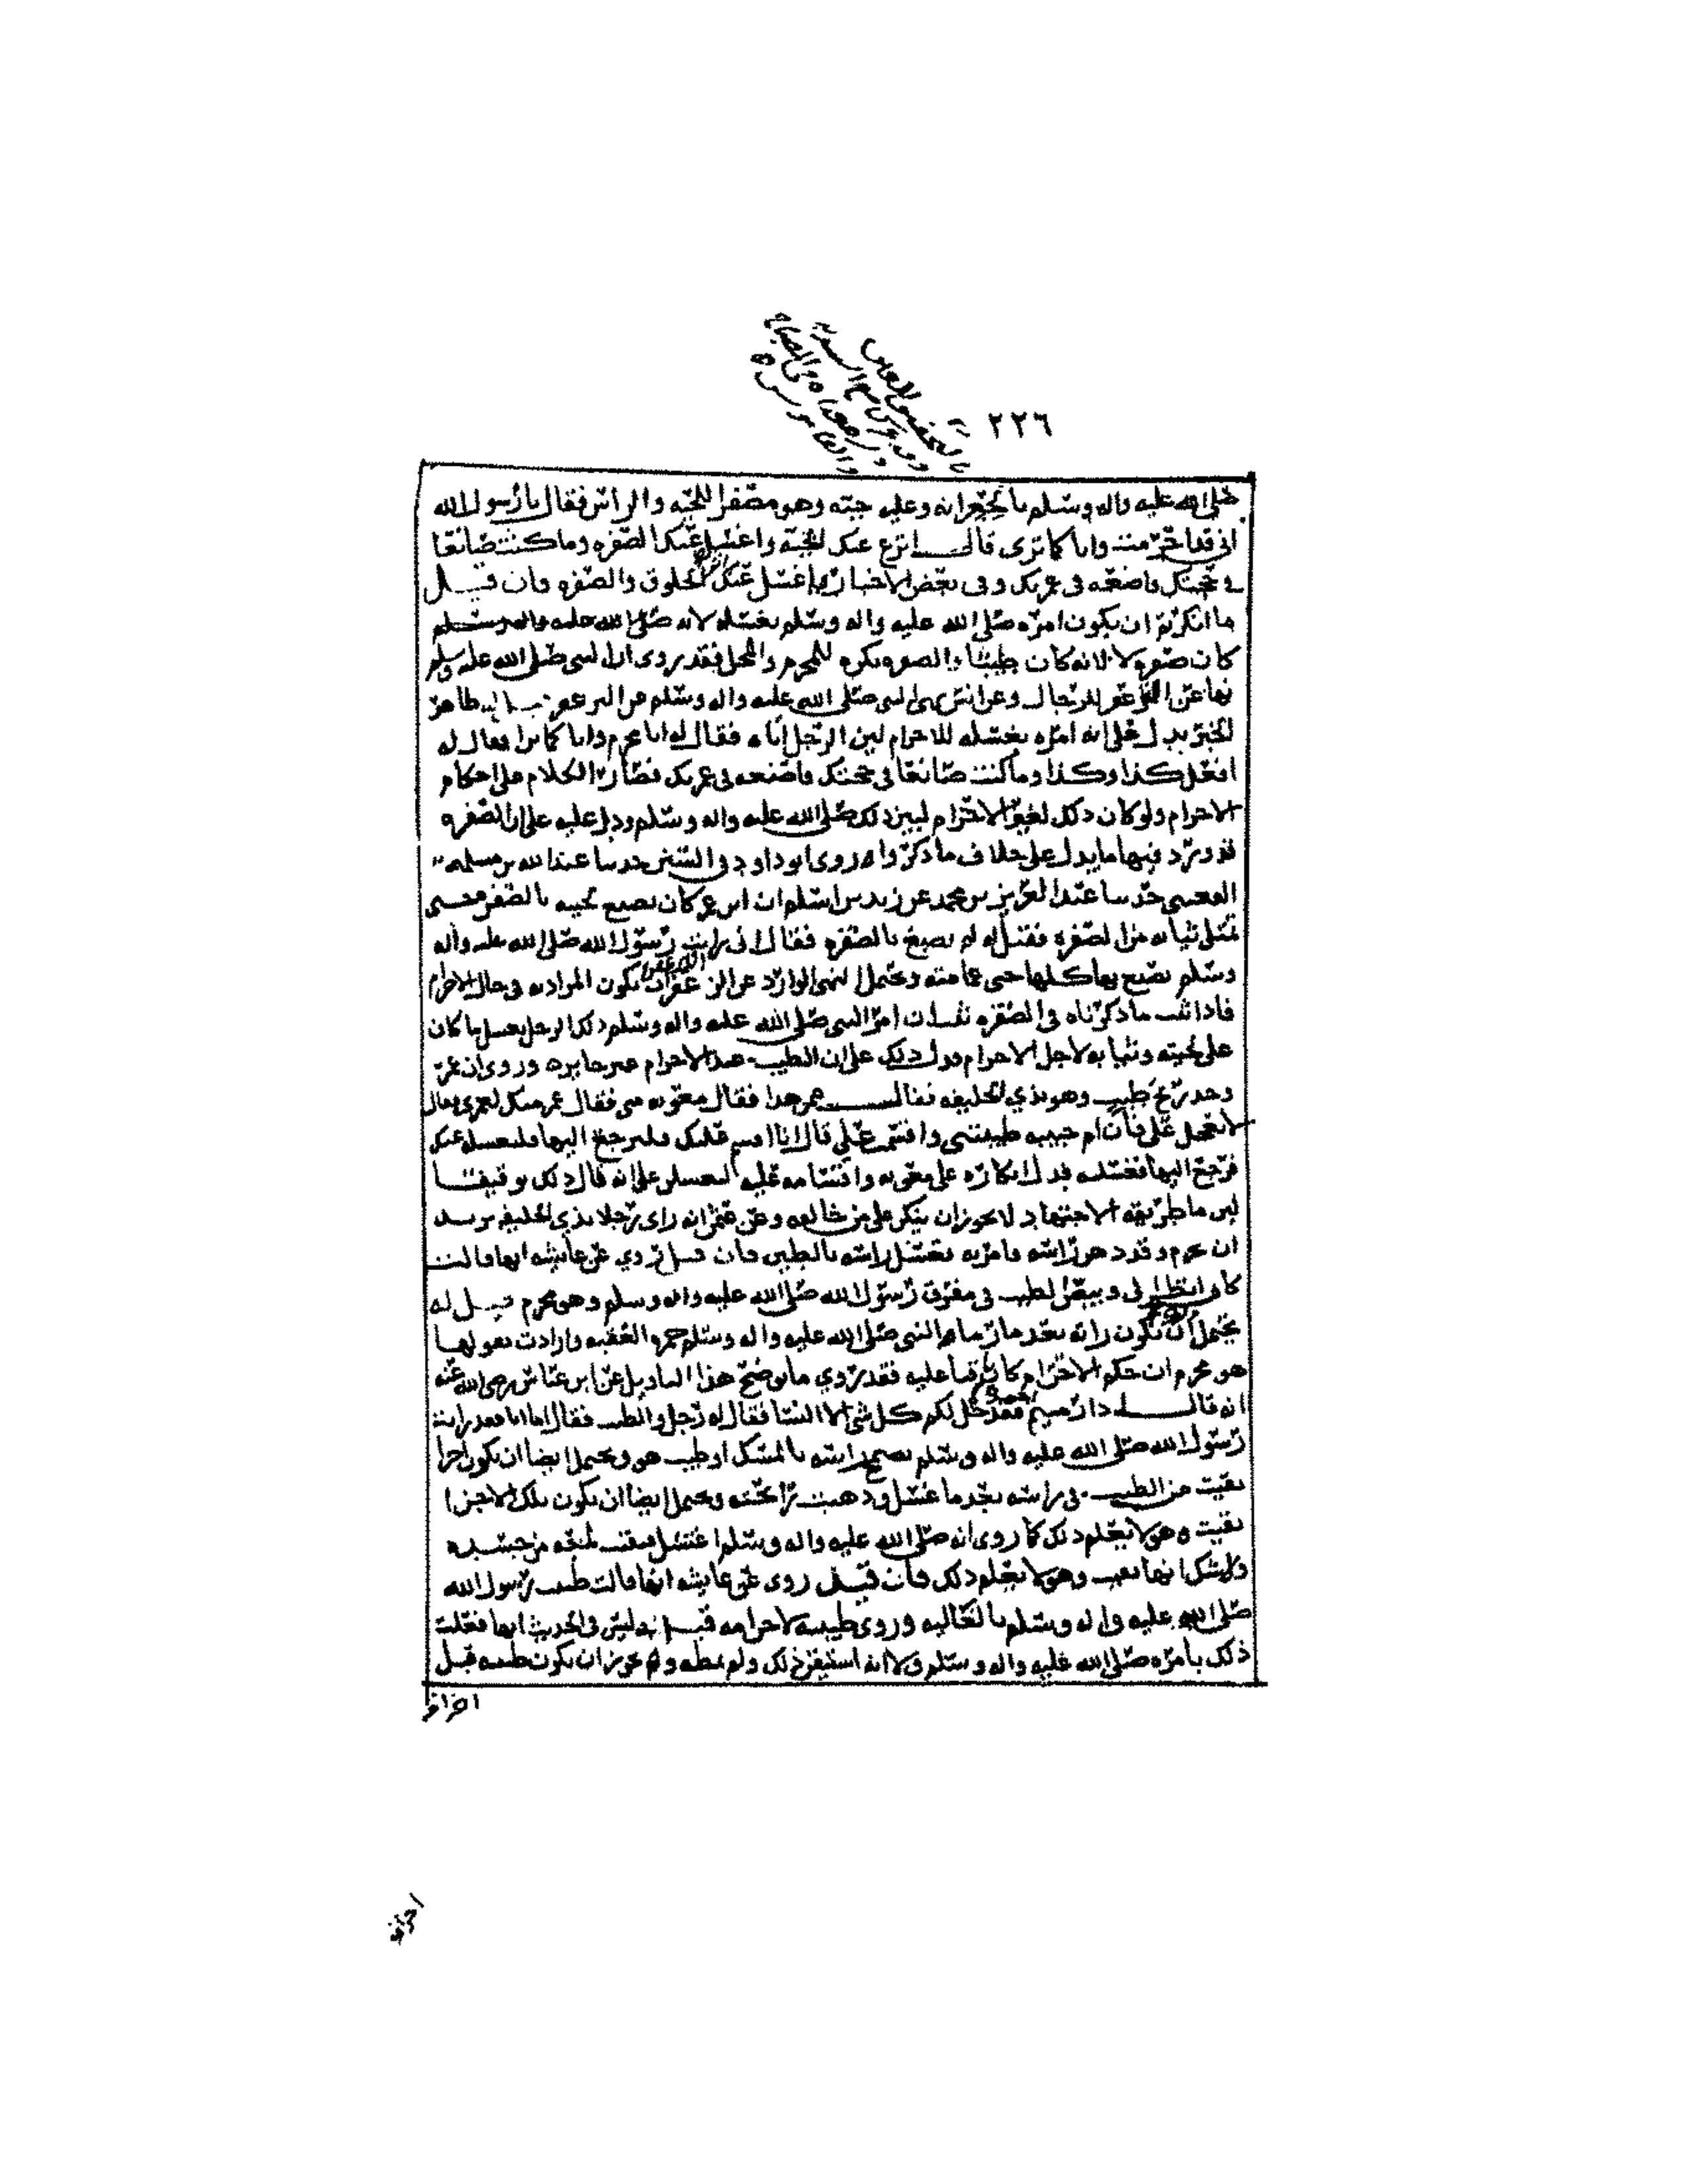 ٢٢٦
صلى الله عليه واله وسلم بالجعرانه وعليه جبته وهو مصفر اللحيه والراس فقال يا رسول الله
اني قد احرمت وانا كما ترى قال انزع عنك الجبه واغسل عنك الصفره وما كنت صانعا
في حجتك فاصنعه في عمرتك وفي بعض الاخبار واغسل عنك اثر الخلوق والصفره فان قيل
ما انكرتم ان يكون امره صلى الله عليه واله وسلم بغسله لانه صلى الله عليه واله وسلم
كان صفره لا لانه كان طيبا والصفره تكره للمحرم والمحل فقد روى ان النبي صلى الله عليه وسلم
نها عن التزعفر للرجال وعن انس نهى النبي صلى الله عليه واله وسلم عن التزعفر قيل له ظاهر
الخبر يدل على انه امره بغسله للاحرام لين الرجل اتاه فقال له انا محرم وانا كما ترا فقال له
افعل كذا وكذا وما كنت صانعا في حجتك فاصنعه في عمرتك فصار الكلام على احكام
الاحرام ولو كان ذلك لغير الاحرام لبين ذلك صلى الله عليه واله وسلم ودل عليه على ان الصفره
قد ورد فيها ما يدل على خلاف ما ذكروا وروى ابو داود في السنن حدثنا عبد الله بن مسلمه
القعنبي حدثنا عبد العزيز بن محمد عن زيد بن اسلم ان ابن عمر كان يصبغ لحيته بالصفره حتى
تمتلي ثيابه من الصفره فقيل له لم تصبغ بالصفره فقال اني رايت رسول الله صلى الله عليه واله
وسلم يصبغ بها كلها حتى عمامته ويحتمل النهي الوارد عن الزعفران ان يكون المراد به في حال الاحرام
فاذا ثبت ما ذكرناه في الصفره ثبت ان امر النبي صلى الله عليه واله وسلم ذلك الرجل بغسل ما كان
على لحيته وثيابه لاجل الاحرام فدل ذلك على ان الطيب عند الاحرام غير جايز وروى ان عمر
وجد ريح طيب وهو بذي الحليفه فقال ممن هذا فقال معويه مني فقال عمر منك لعمري فقال
لا تعجل علي فان ام حبيبه طيبتني واقسمت علي قال انا اقسم عليك فلترجع اليها فلتغسله عنك
فرجع اليها فغسلته فدل انكاره على معويه واقسامه عليه لتغسله على انه قال ذلك توقيفا
لين ما طريقه الاجتهاد لا يجوز ان ينكر على من خالفه وعن عثمان انه راى رجلا بذي الحليفه يريد
ان يحرم وقد دهن راسه فامر به فغسل راسه بالطين فان قيل روي عن عايشه انها قالت
كاني انظر الى وبيص الطيب في مفرق رسول الله صلى الله عليه واله وسلم وهو محرم قيل له
يحتمل ان تكون راته بعد ما رماها النبي صلى الله عليه واله وسلم جمره العقبه وارادت بقولها
هو محرم ان حكم الاحرام كان باقيا عليه فقد روي ما يوضح هذا التاويل عن ابن عباس رضى الله عنه
انه قال اذا رميتم الجمره فقد حل لكم كل شي الا النسا فقال له رجل والطيب فقال اما انا فقد رايت
رسول الله صلى الله عليه واله وسلم يضمخ راسه بالمسك او طيب هو ويحتمل ايضا ان يكون اجزا
بقيت من الطيب في راسه بعد ما غسل وذهبت رائحته ويحتمل ايضا ان تكون تلك الاجزا
بقيت وهو لا يعلم ذلك كما روى انه صلى الله عليه واله وسلم اغتسل فبقيت لمعه من جسده
ولا شك انها بقيت وهو لا يعلم ذلك فان قيل روى عن عايشه انها قالت طيبت رسول الله
صلى الله عليه واله وسلم بالغاليه وروى طيبته لاحرامه قيل له ليس في الحديث انها فعلت
ذلك بامره صلى الله عليه واله وسلم ولا انه استقر ذلك ولم يمطه ولم يجوز ان يكون طيبه قبل
احرامه